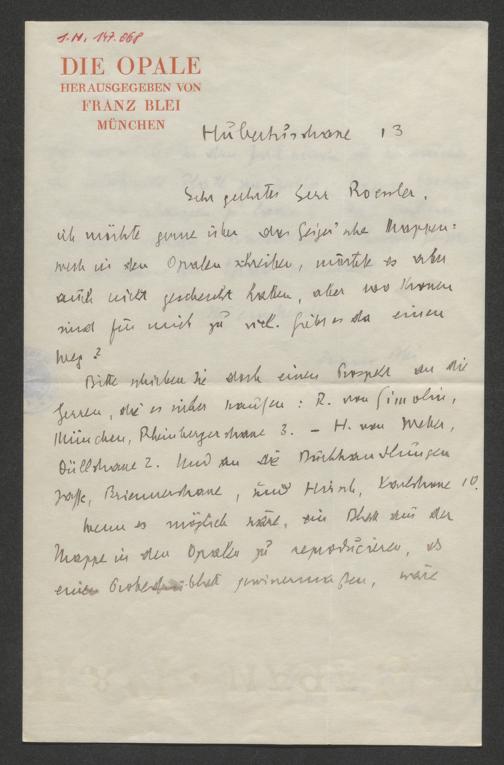 I.N. 147.068
DIE OPALE
HERAUSGEGEBEN VON
FRANZ BLEI
MÜNCHEN
Hubertusstrasse 13
Sehr geehrter Herr Roessler,
ich möchte gerne über das Geiger'sche Mappen=
werk in den Opalen schreiben, möchte es aber
auch nicht geschenkt haben, aber 100 Kronen
sind für mich zu viel. Gibt es da einen
Weg?
Bitte schicken Sie doch einen Prospekt an die
Herren, die es sicher kaufen: R. von Simolin,
München, Rheinbergerstrasse 3. – H. von Weber,
2. Und an die Buchhandlungen
Jaffe, Briennerstrasse, und Hirsch, Karlstrasse 10.
Wenn es möglich wäre, ein Blatt aus der
Mappe in den Opalen zu reproducieren, als
ein gewissermaßen, wäre